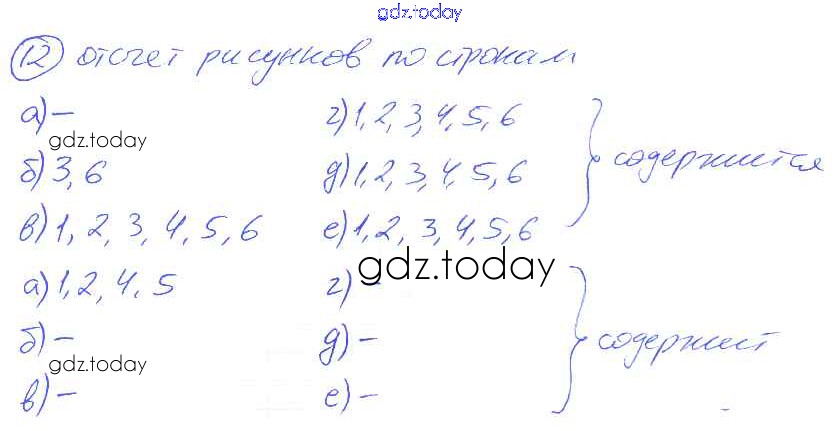 gdz.today
12 отсчет рисунков по строкам
а) – г) 1, 2, 3, 4, 5, 6
gdz.today
б) 3, 6 д) 1, 2, 3, 4, 5, 6 содержится
в) 1, 2, 3, 4, 5, 6 е) 1, 2, 3, 4, 5, 6
gdz.today
а) 1, 2, 4, 5 г) –
б) – д) – содержит
gdz.today
в) – е) –